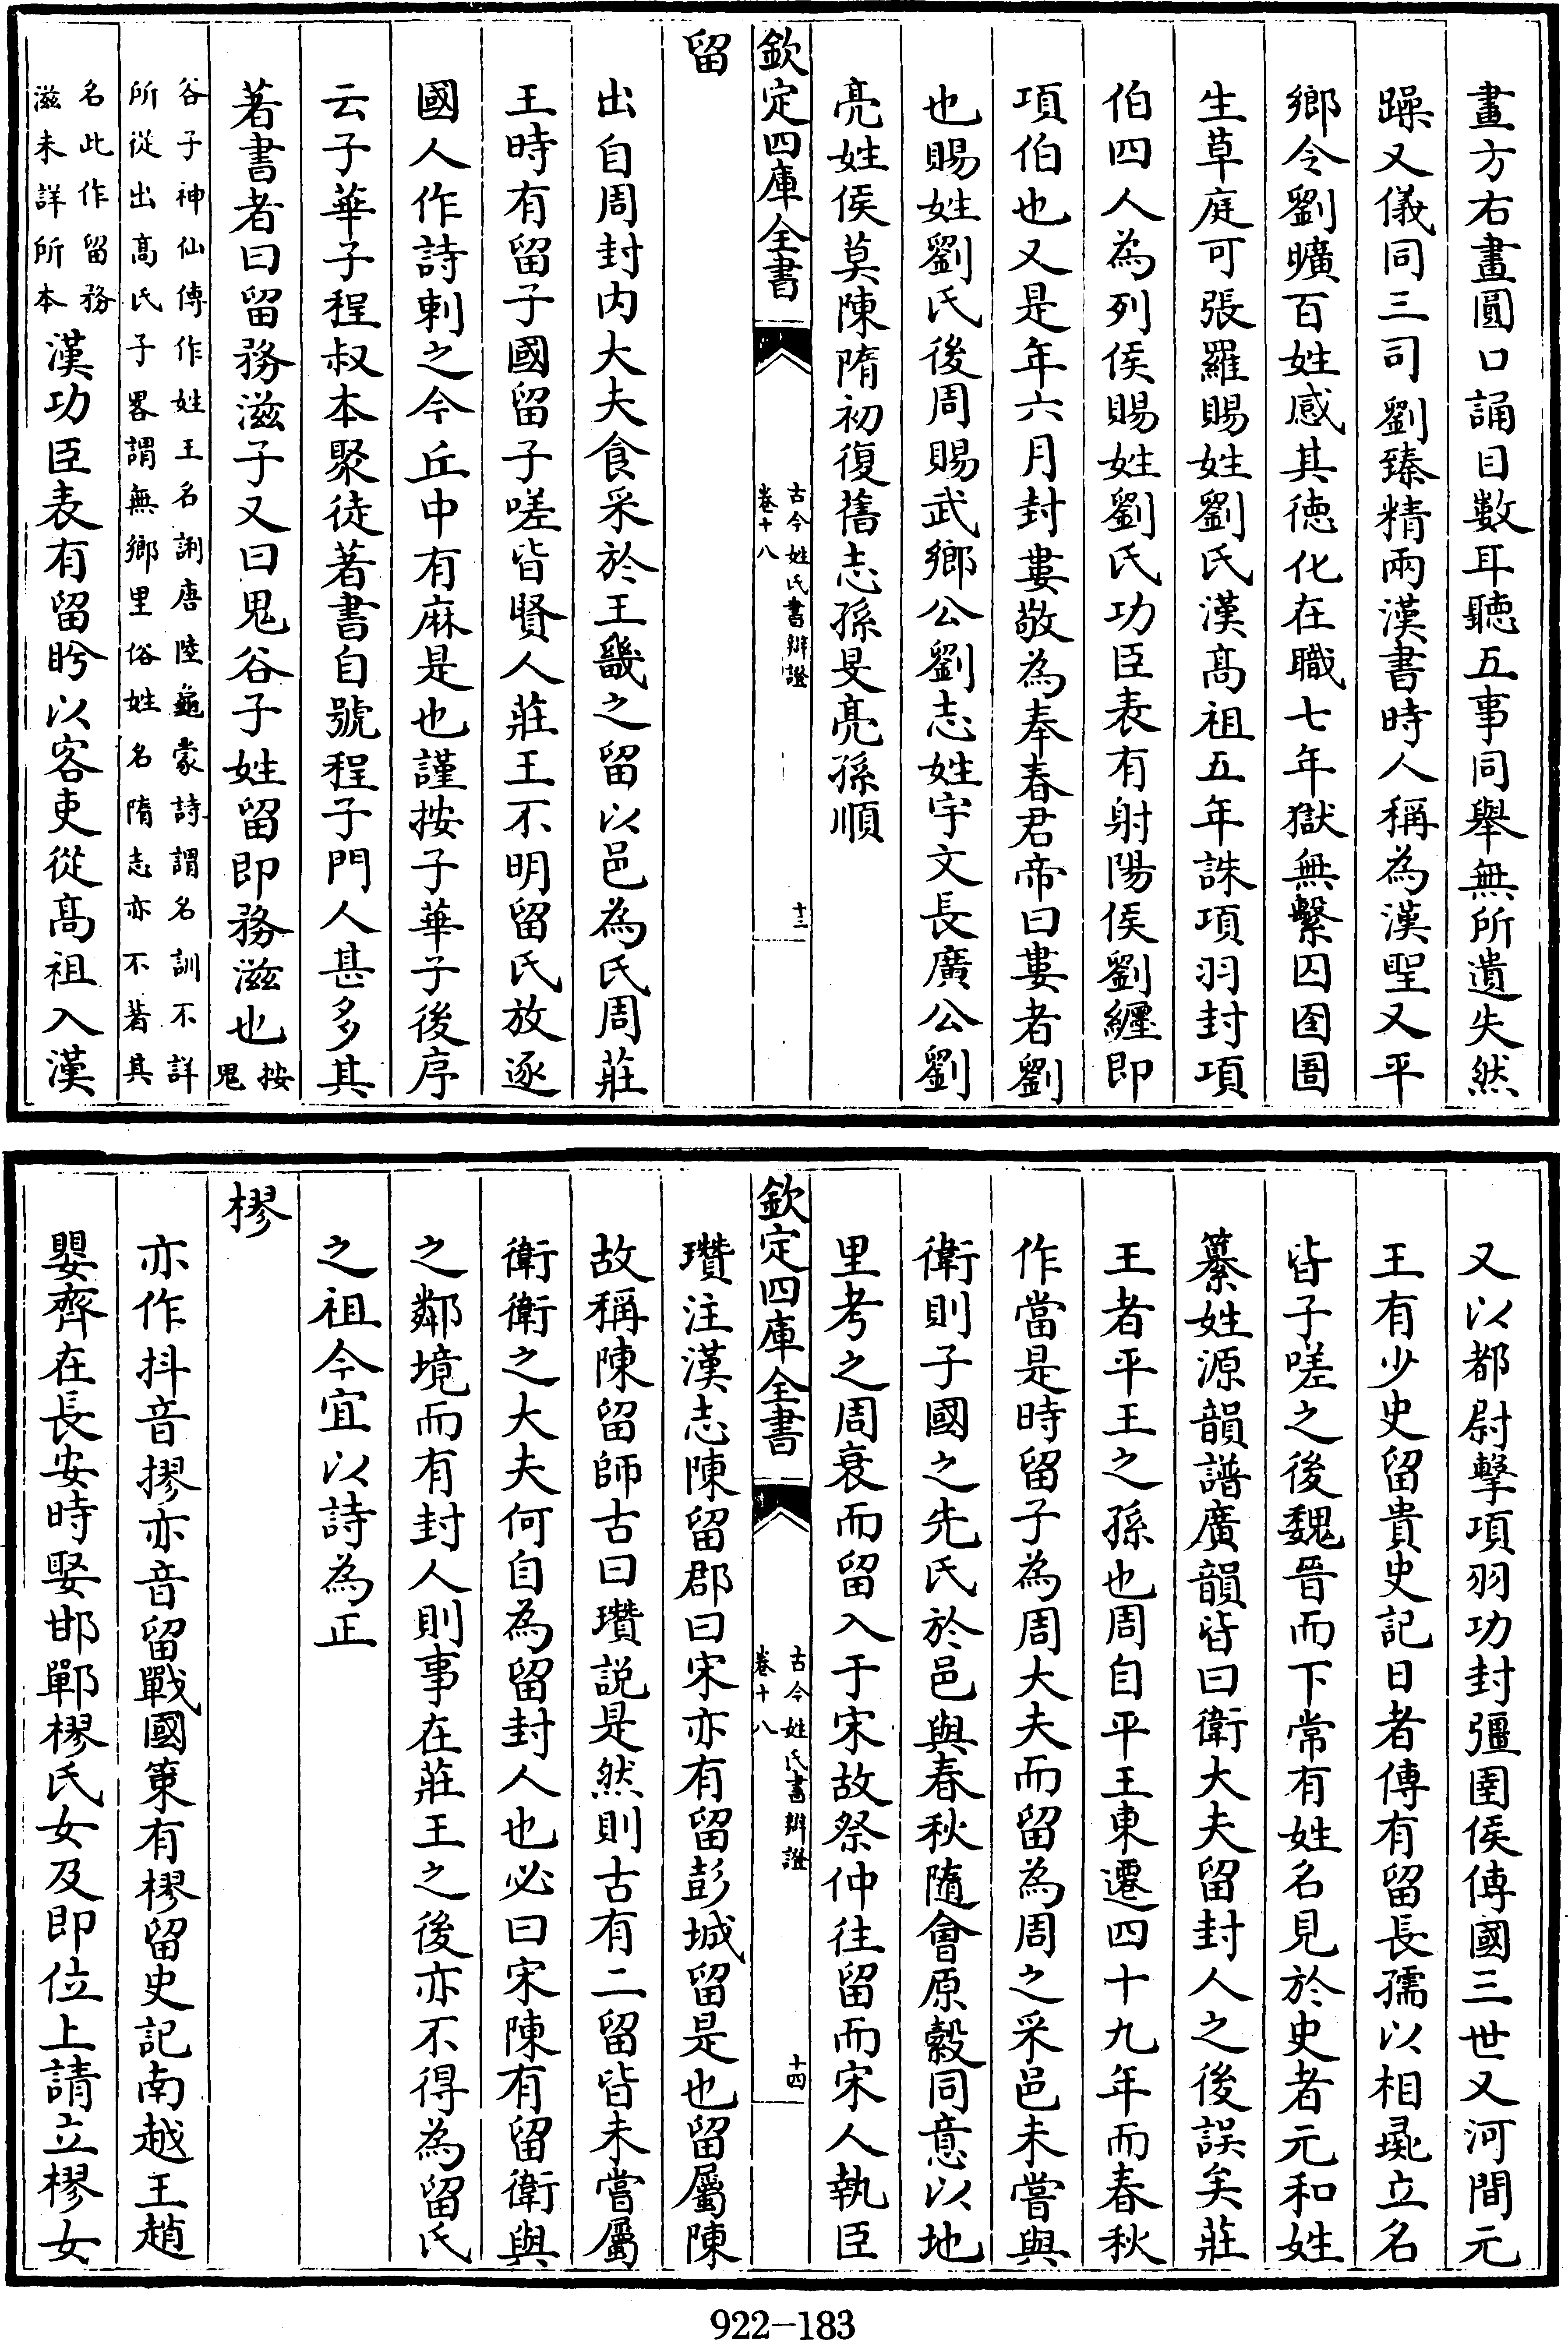 畫方右畫圓口誦目數耳聽五事同舉無所遺失然
躁又儀同三司劉臻精兩漢書時人稱為漢聖又平
鄉令劉曠百姓感其徳化在職七年獄無繫囚囹圄
生草庭可張羅賜姓劉氏漢髙祖五年誅項羽封項
伯四人為列侯賜姓劉氏功臣表有射陽侯劉纒即
項伯也又是年六月封婁敬為奉春君帝曰婁者劉
也賜姓劉氏後周賜武鄉公劉志姓宇文長廣公劉
亮姓侯莫陳隋初復舊志孫旻亮孫順
欽定四庫全書
古今姓氏書辯證
卷十八
十三
留
出自周封内大夫食采於王畿之留以邑為氏周莊
王時有留子國留子嗟皆賢人莊王不明留氏放逐
國人作詩刺之今丘中有麻是也謹按子華子後序
云子華子程叔本聚徒著書自號程子門人甚多其
著書者曰留務滋子又曰鬼谷子姓留即務滋也按鬼
谷子神仙傳作姓王名誗唐陸龜蒙詩謂名訓不詳
所從出髙氏子畧謂無鄉里俗姓名隋志亦不著其
名此作留務
滋未詳所本
漢功臣表有留盻以客吏從髙祖入漢
又以都尉擊項羽功封彊圉侯傳國三世又河間元
王有少史留貴史記日者傳有留長孺以相彘立名
皆子嗟之後魏晉而下常有姓名見於史者元和姓
纂姓源韻譜廣韻皆曰衛大夫留封人之後誤矣莊
王者平王之孫也周自平王東遷四十九年而春秋
作當是時留子為周大夫而留為周之采邑未嘗與
衛則子國之先氏於邑與春秋隨會原穀同意以地
里考之周衰而留入于宋故祭仲往留而宋人執臣
欽定四庫全書
古今姓氏書辯證
卷十八
十四
瓚注漢志陳留郡曰宋亦有留彭城留是也留屬陳
故稱陳留師古曰瓚説是然則古有二留皆未嘗屬
衛衛之大夫何自為留封人也必曰宋陳有留衛與
之鄰境而有封人則事在莊王之後亦不得為留氏
之祖今宜以詩為正
樛
亦作抖音摎亦音留戰國策有樛留史記南越王趙
嬰齊在長安時娶邯鄲樛氏女及即位上請立樛女
922-183